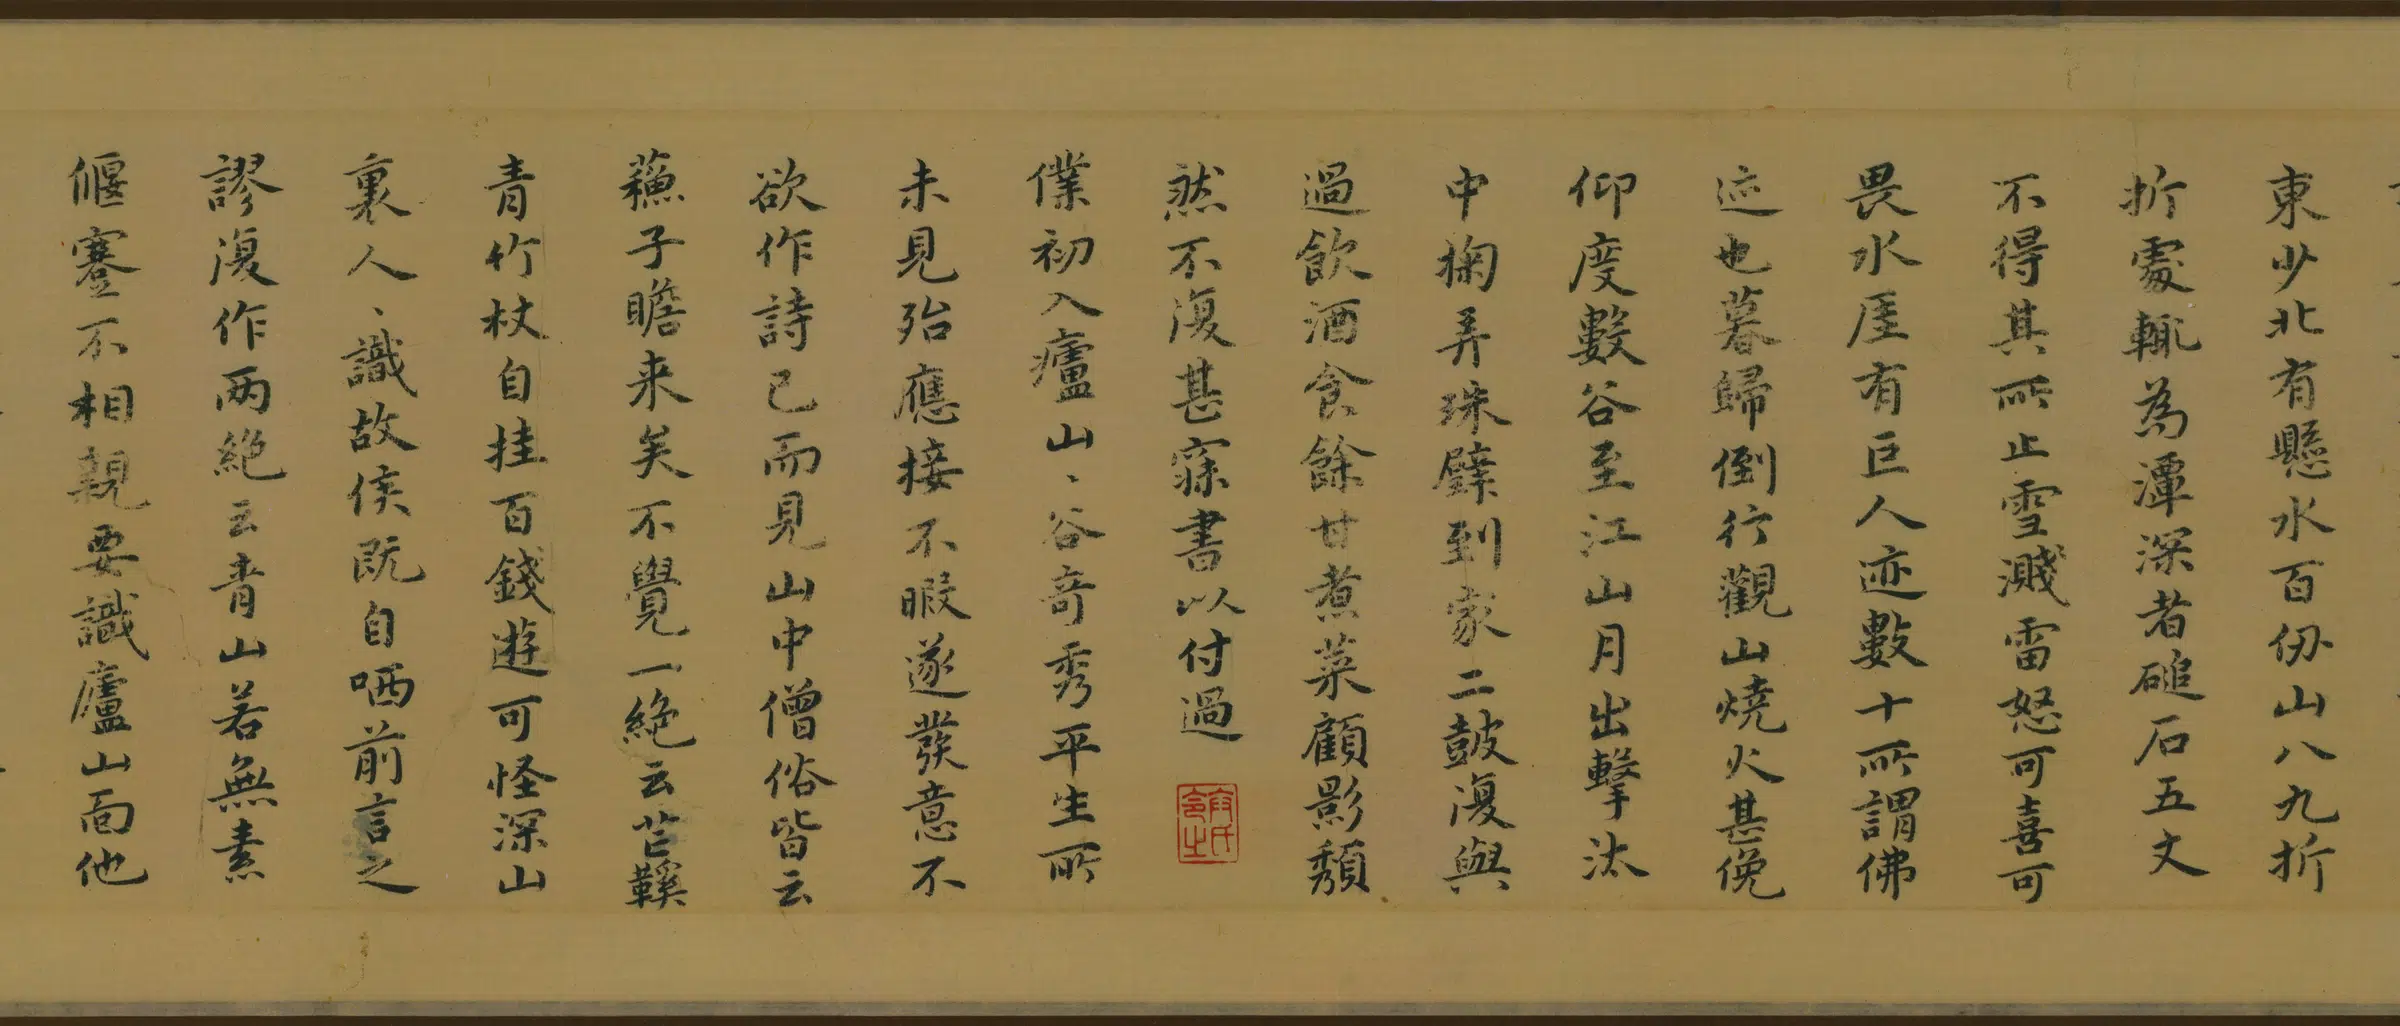 東少北有懸水百仞山八九折
折處輒為潭深者磓石五丈
不得其所止雪濺雷怒可喜可
畏水厓有巨人迹數十所謂佛
迹也暮歸倒行觀山燒火甚俛
仰度數谷至江山月出擊汰
中掬弄珠璧到家二鼓復與
過飲酒食餘甘煮菜顧影頹
然不復甚寐書以付過
僕初入廬山、谷奇秀平生所
未見殆應接不暇遂發意不
欲作詩已而見山中僧俗皆云
蘓子瞻来矣不覺一絕云芒鞵
青竹杖自挂百錢遊可怪深山
裏人、識故侯既自哂前言之
謬復作两絕云青山若無素
偃蹇不相親要識廬山面他